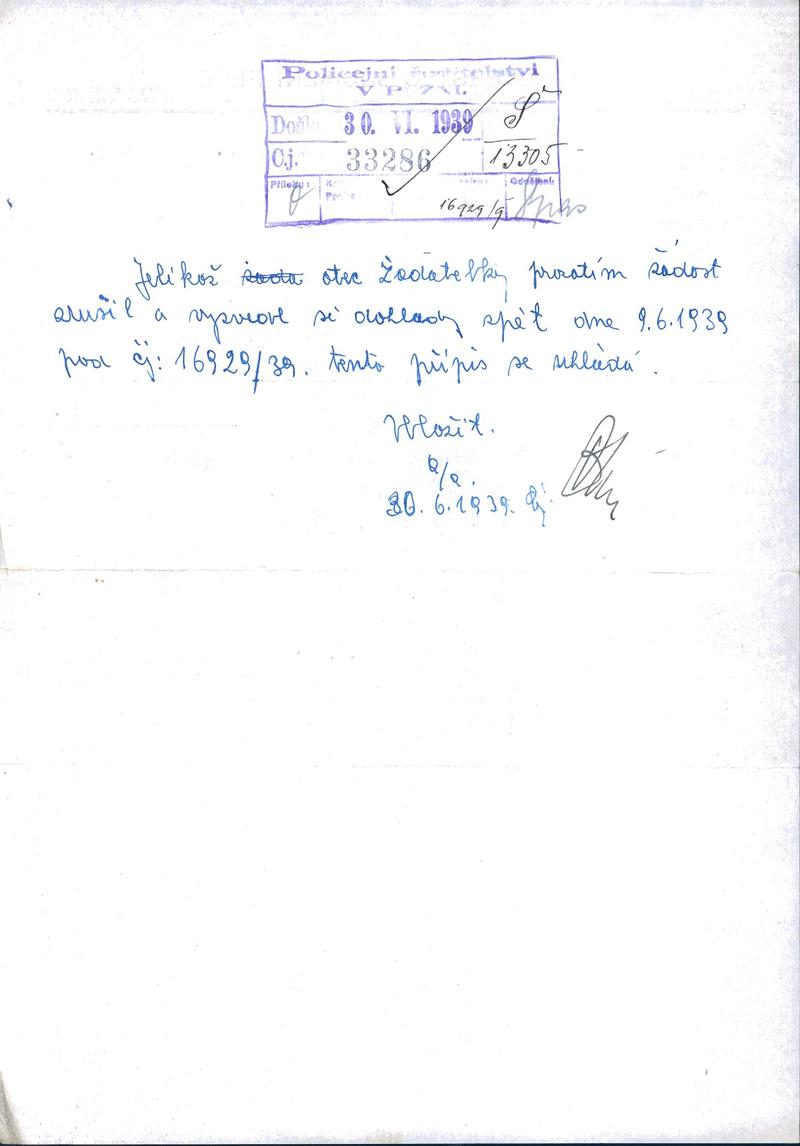 Policejní ředitelství
V Plzni.
Došlo 30. VI. 1939 Š
Č.j. 33286 13305
Přílohy:
16929/9
Jelikož žada otec žadatelky prozatím žádost
zrušil a vyzvedl si doklady zpět dne 9.6.1939
pod čj: 16929/39. tento přípis se ukládá.
Uložit.
a/a.
30.6.1939.